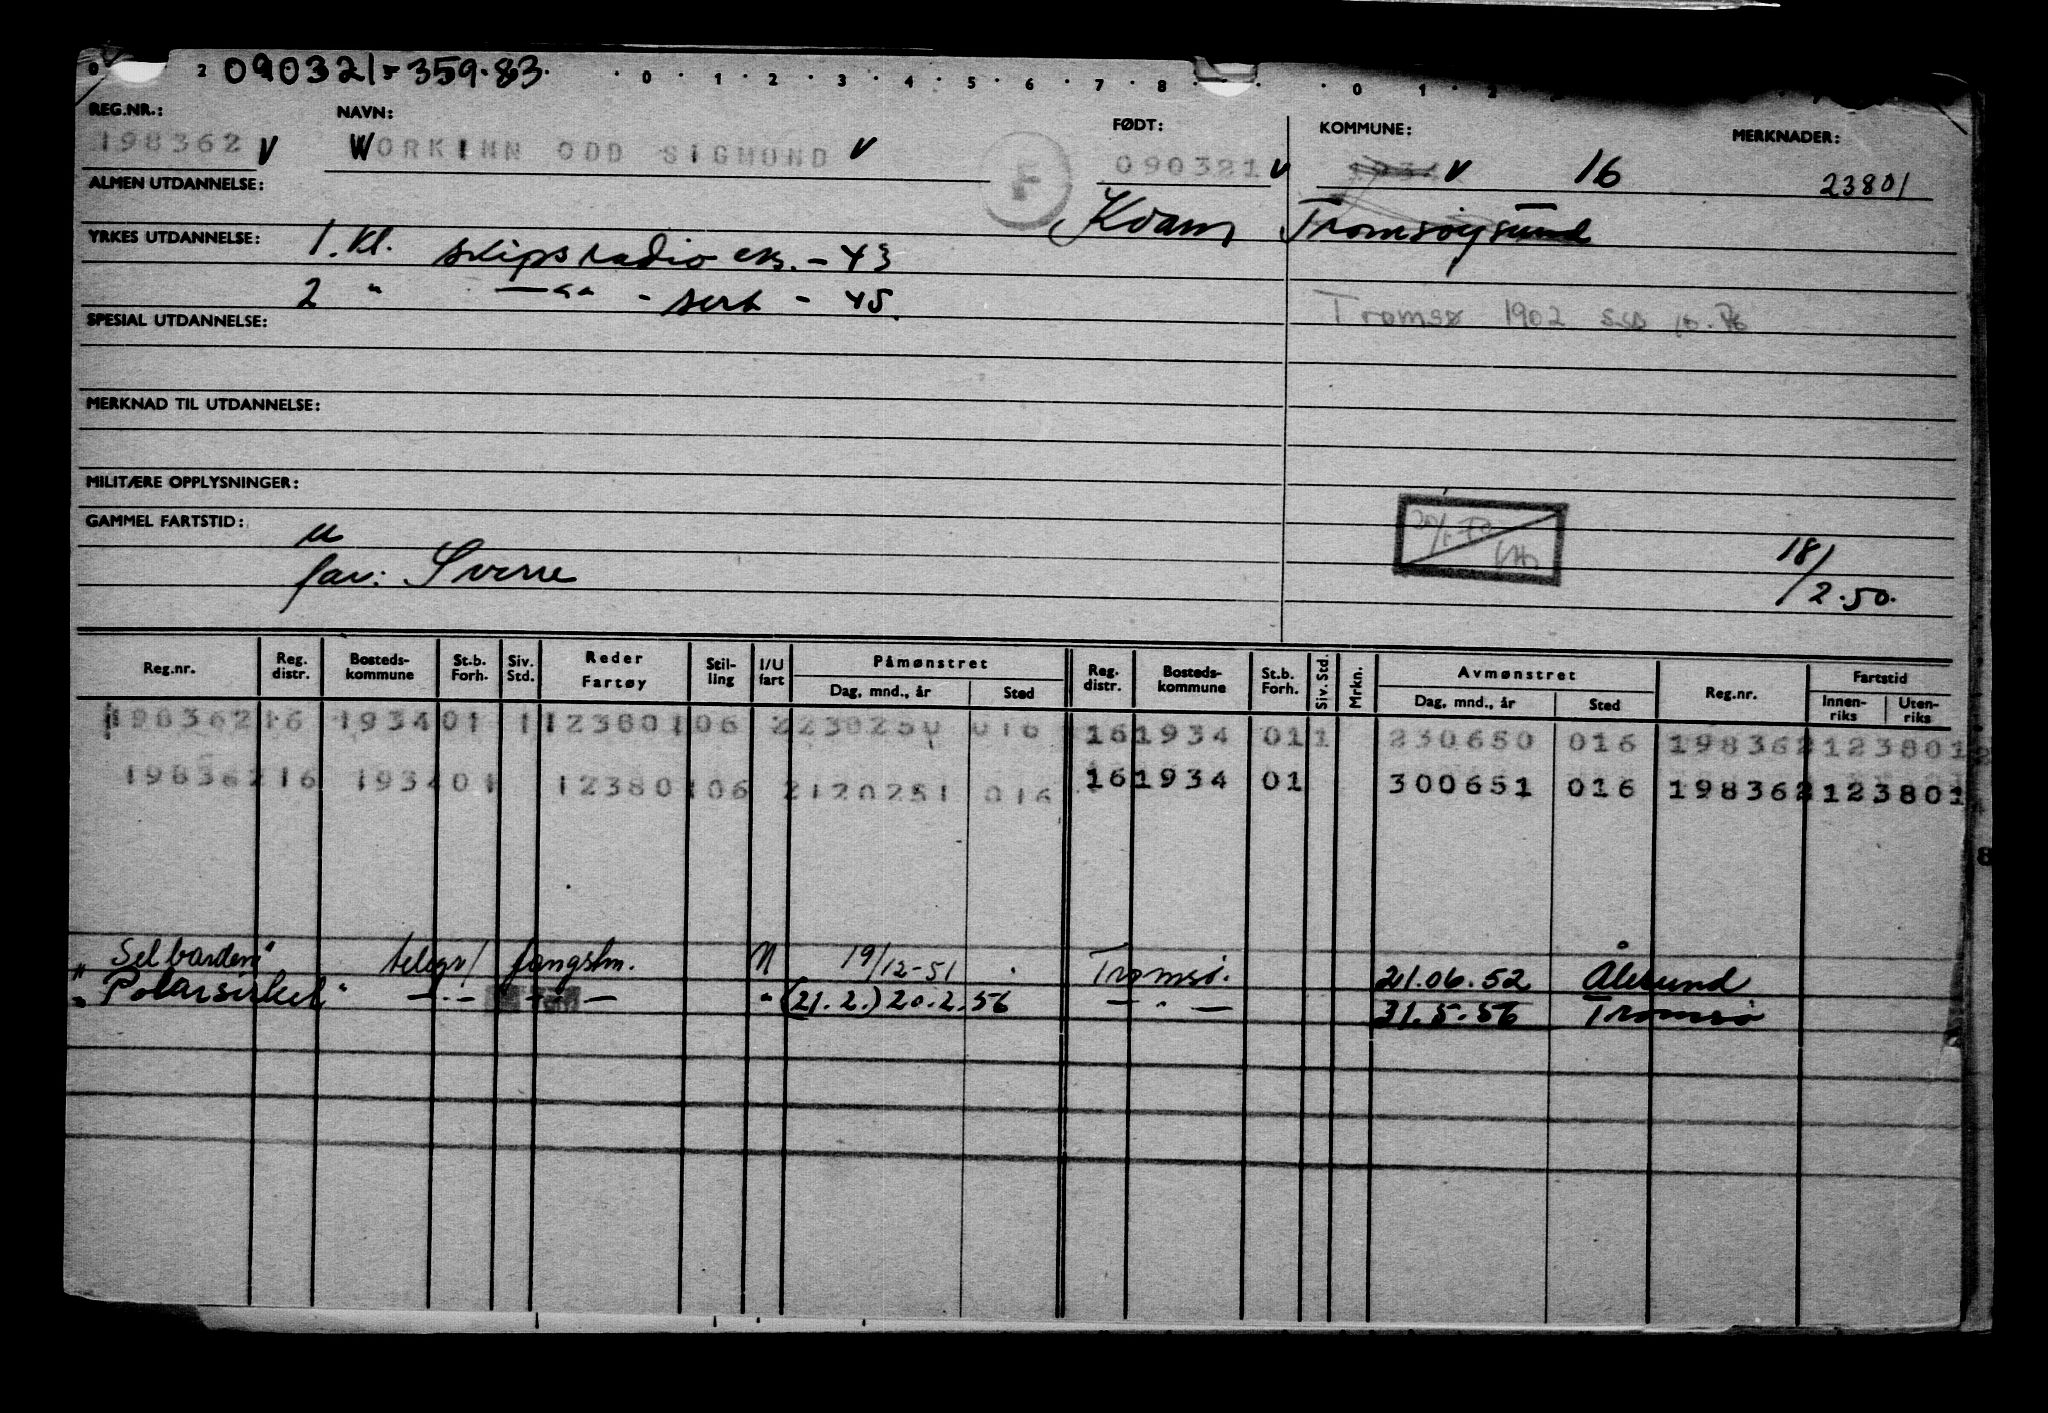 090321-359.83.
REG.NR.: NAVN: FØDT: KOMMUNE: MERKNADER:
198362 V WORKINN ODD SIGMUND V F 090321 V V 16 23801
ALMEN UTDANNELSE: Kvam Tromsøysund
YRKES UTDANNELSE: 1. kl. skipsradio eks. - 43
2 " —"— - sert - 45.
SPESIAL UTDANNELSE: Tromsø 1902
MERKNAD TIL UTDANNELSE:
MILITÆRE OPPLYSNINGER:
GAMMEL FARTSTID: u
far: Sverre 18/2.50.
Reg.nr. Reg. distr. Bosteds-kommune St.b. Forh. Siv. Std. Reder Fartøy Stil-ling I/U fart Påmønstret Dag, mnd., år Sted Reg. distr. Bosteds-kommune St.b. Forh. Siv. Std. Mrkn. Avmønstret Dag, mnd., år Sted Reg.nr. Fartstid Innen-riks Uten-riks
198362 16 1934 01 1 123801 06 2 230250 016 16 1934 01 1 230650 016 198362 123801
198362 16 1934 01 123801 06 2 120251 016 16 1934 01 300651 016 198362 123801
"Selbarden" telegr/ fangstm. N 19/12-51 Tromsø. 21.06.52 Ålesund
"Polarsirkel" —"— —"— " (21.2.) 20.2.56 —"— 31.5.56 Tromsø